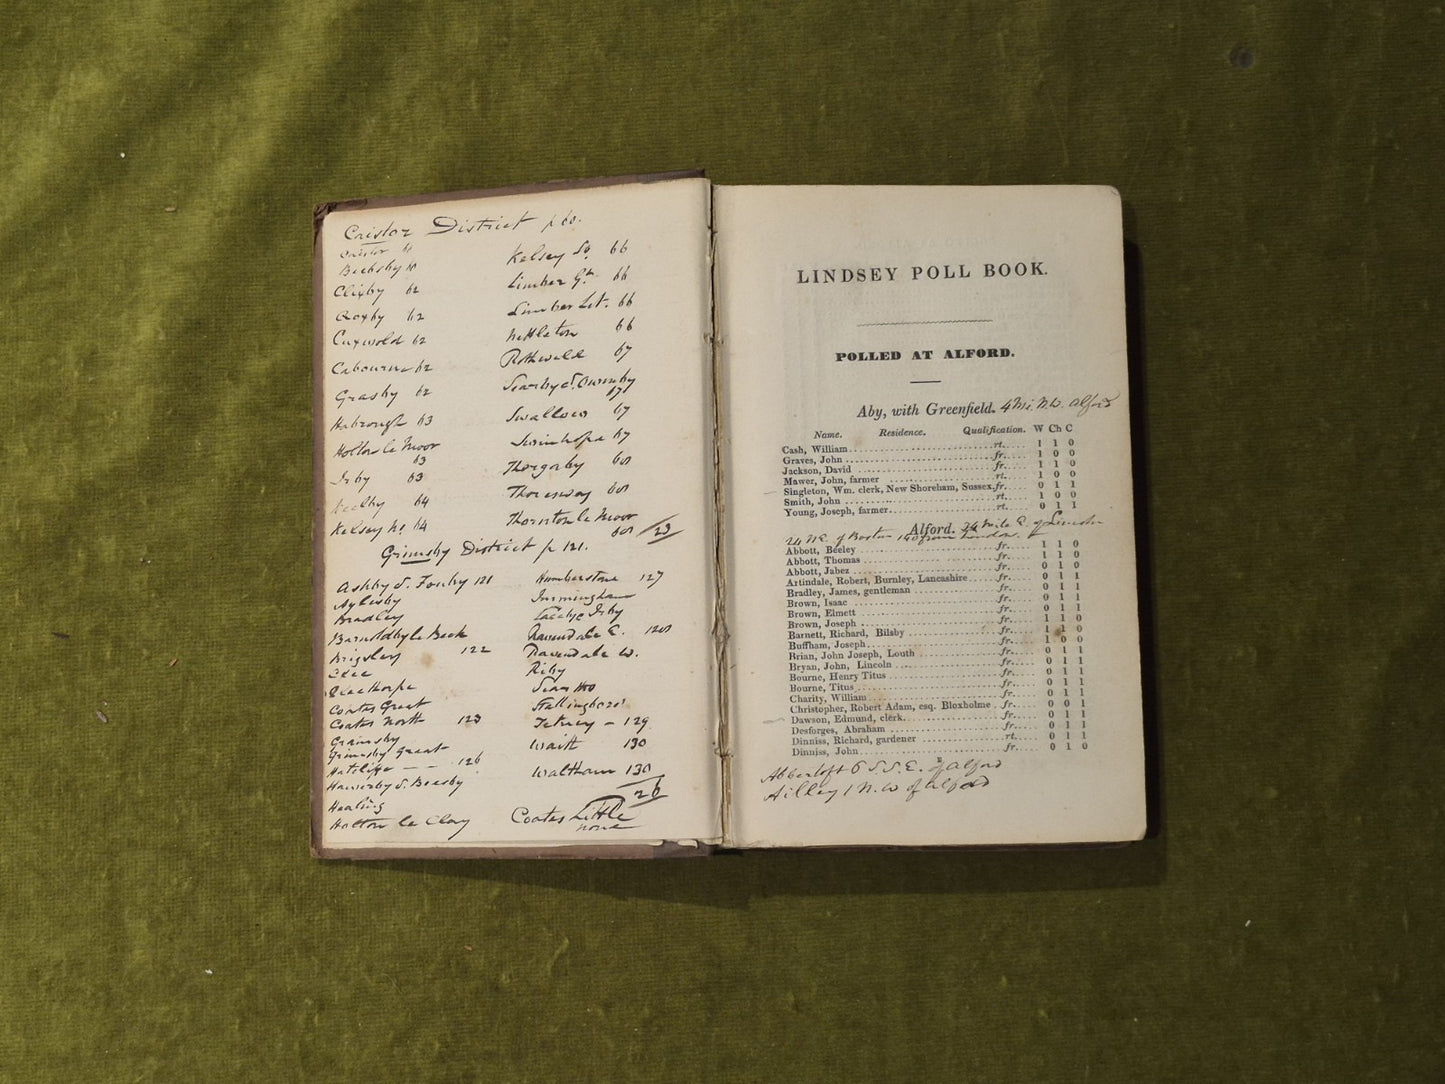 Caistor District p 60.
Caistor 61
Beelsby 61
Clixby 62
Croxby 62
Cuxwold 62
Cabourne 62
Grasby 62
Habrough 63
Holton le Moor
63
Irby 63
Keelby 64
Kelsey No. 64
Kelsey So. 66
Limber Gt. 66
Limber Lit. 66
Nettleton 66
Rothwell 67
Searby & Owmby
67
Swallow 67
Swinhope 67
Thorganby 68
Thoresway 68
Thornton le Moor
68
23
Grimsby District p 121.
Ashby & Fenby 121
Aylesby
Bradley
Barnoldby le Beck
Brigsley 122
Clee
Cleethorpe
Coates Great
Coates North 123
Grainsby
Grimsby Great
Hatcliffe - - 126
Hawerby & Beesby
Healing
Holton le Clay
Humberstone 127
Immingham
Laceby Irby
Ravendale E. 128
Ravendale W.
Riby
Scartho
Stallingboro'
Tetney - 129
Waith 130
Waltham 130
26
Coates Little
none
LINDSEY POLL BOOK.
POLLED AT ALFORD.
Aby, with Greenfield. 4 Mi. N.W. Alford
Name. Residence. Qualification. W Ch C
Cash, William rt. 1 1 0
Graves, John fr. 1 0 0
Jackson, David fr. 1 1 0
Mawer, John, farmer rt. 1 0 0
Singleton, Wm. clerk, New Shoreham, Sussex fr. 0 1 1
Smith, John rt. 1 0 0
Young, Joseph, farmer rt. 0 1 1
Alford. 34 mile E. of Lincoln
24 N.E. of Boston 140 from London.
Abbott, Beeley fr. 1 1 0
Abbott, Thomas fr. 1 1 0
Abbott, Jabez fr. 1 1 0
Artindale, Robert, Burnley, Lancashire fr. 0 1 1
Bradley, James, gentleman fr. 0 1 1
Brown, Isaac fr. 0 1 1
Brown, Elmett fr. 0 1 1
Brown, Joseph fr. 1 1 0
Barnett, Richard, Bilsby fr. 1 1 0
Buffham, Joseph fr. 1 0 0
Brian, John Joseph, Louth fr. 0 1 1
Bryan, John, Lincoln fr. 0 1 1
Bourne, Henry Titus fr. 0 1 1
Bourne, Titus fr. 0 1 1
Charity, William fr. 0 1 1
Christopher, Robert Adam, esq. Bloxholme fr. 0 0 1
Dawson, Edmund, clerk fr. 0 1 1
Desforges, Abraham fr. 0 1 1
Dinniss, Richard, gardener rt. 0 1 1
Dinniss, John fr. 0 1 0
Abberloft 6 S.S.E. of Alford
Ailley 1 N.W of Alford